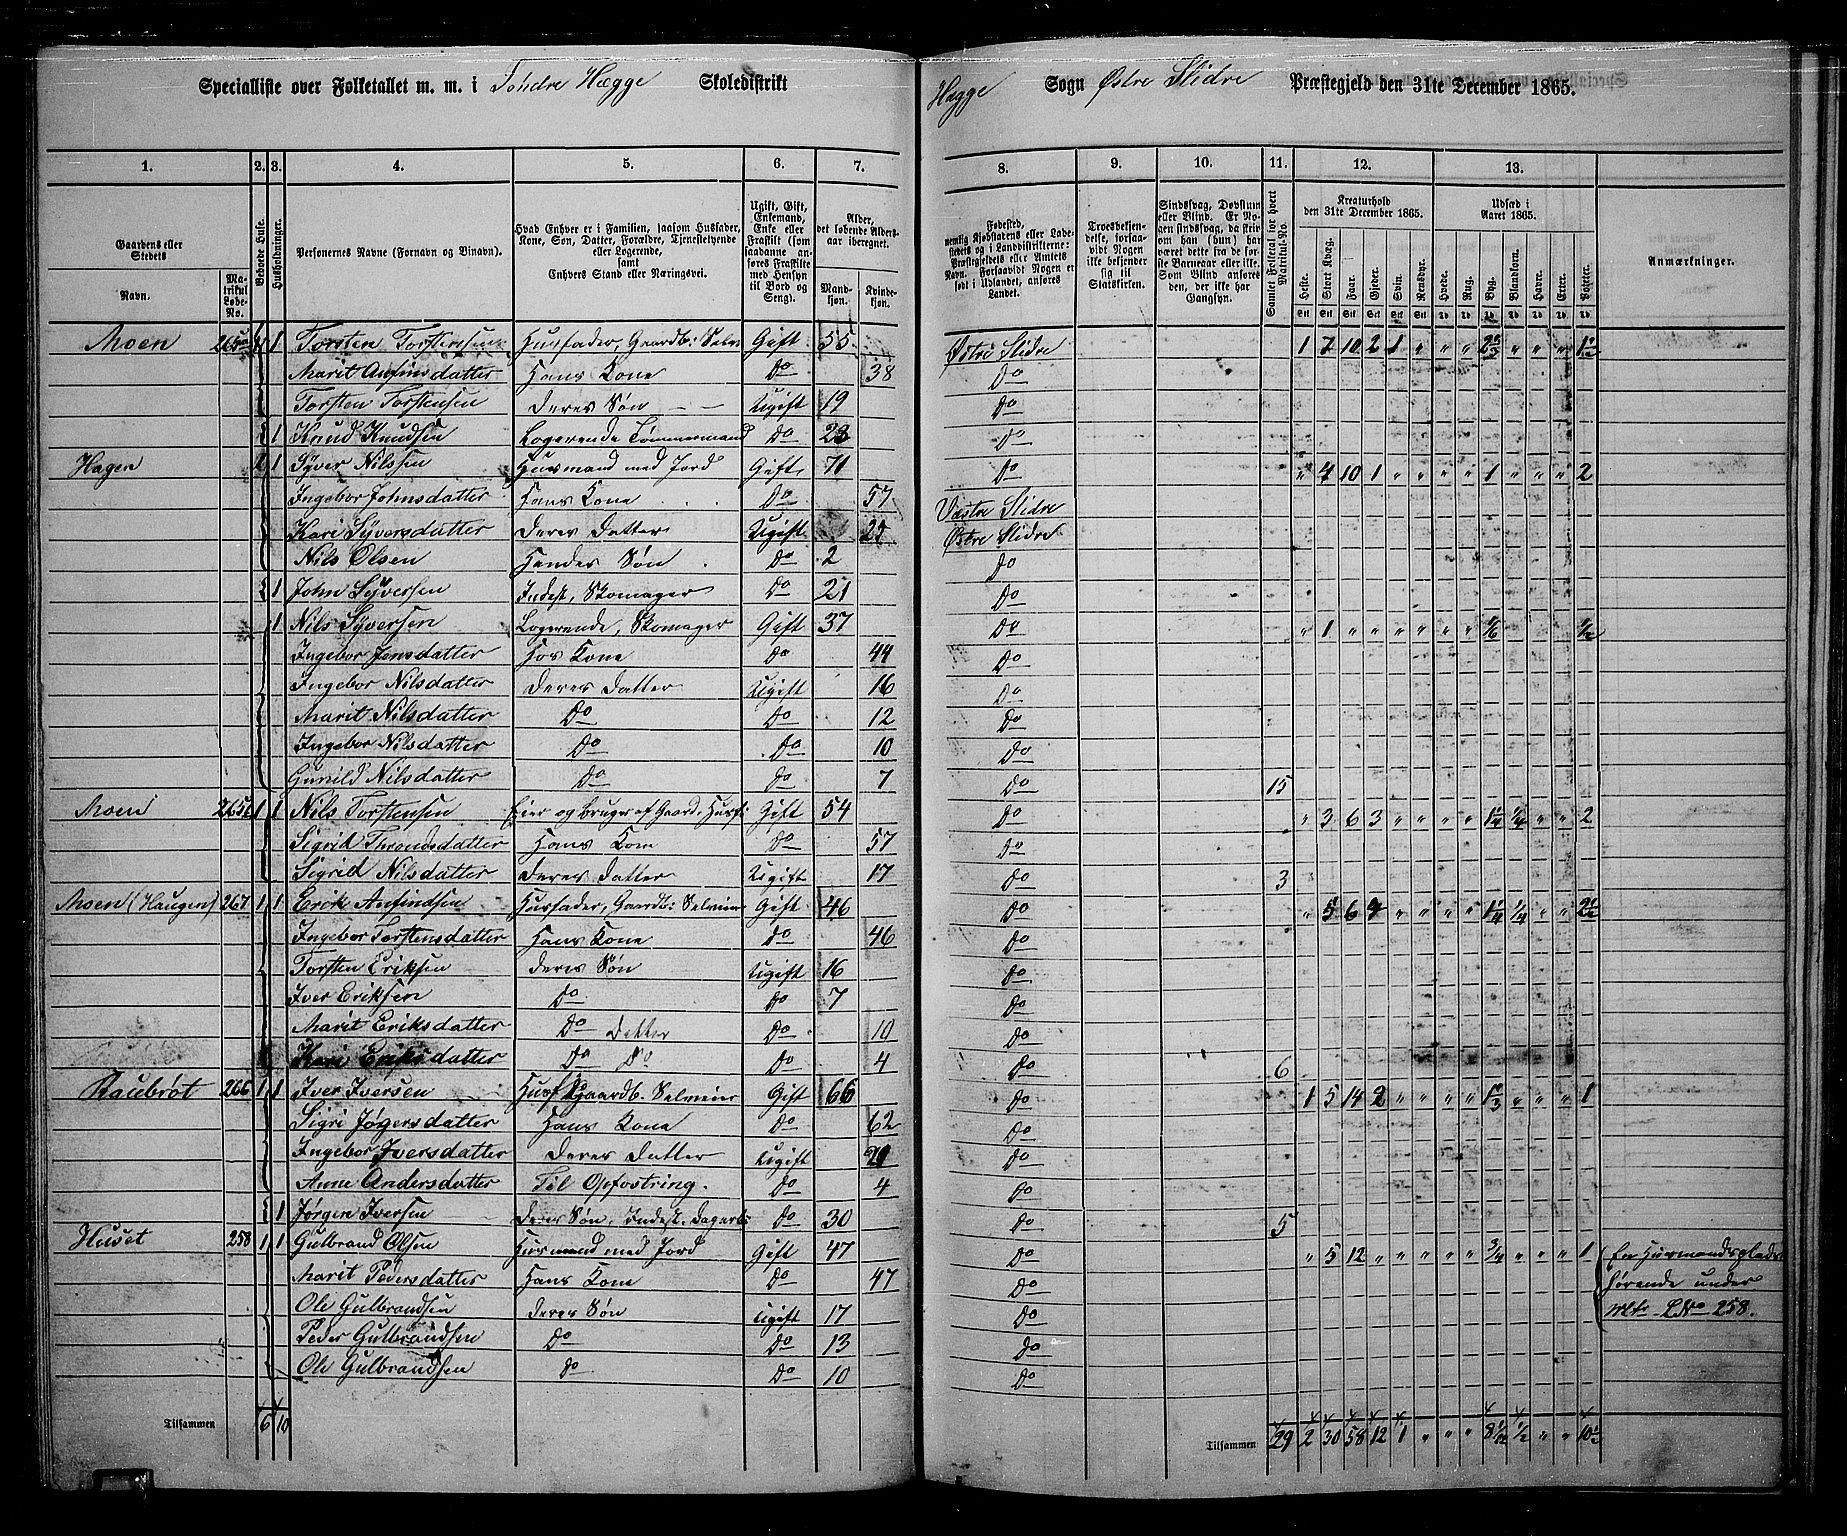 Specialliste over Folketallet m. m. i Søndre Hægge Skoledistrikt Hægge Sogn Østre Slidre Præstegjeld den 31te December 1865.
1. 2. 3. 4. 5. 6. 7. 8. 9. 10. 11. 12. 13.
Gaardens eller Stedets Navn. Matrikul Løbe-No. Beboede Huse. Husholdninger. Personernes Navne (Fornavn og Tilnavn). Hvad Enhver er i Familien, saasom Husfader, Kone, Søn, Datter, Forældre, Tjenestetyende eller Logerende, samt Enhvers Stand eller Næringsvei. Ugift, Gift, Enkemand, Enke eller Fraskilt (som saadanne anføres Fraskilte med Hensyn til Bord og Seng). Alder, det løbende Aldersaar iberegnet. Mandkjøn. Kvindekjøn.
Fødested, nemlig Kjøbstadens eller Ladestedets og i Landdistrikterne: Præstegjeldets eller Amtets Navn. Forsaavidt Nogen er født i Udlandet, anføres Landet. Troesbekjendelse, forsaavidt Nogen ikke bekjender sig til Statskirken. Sindssvag, Døvstum eller Blind. Er Nogen sindssvag, da skriv om han (hun) har været dette fra de første Barneaar eller ikke. Som Blind anføres den, der ikke har Gangsyn. Samlet Folketal for hvert Matrikul-No.
Kreaturhold den 31te December 1865. Heste. Stort Kvæg. Faar. Gjeder. Svin. Rensdyr. Udsæd i Aaret 1865. Hvede. Rug. Byg. Blandkorn. Havre. Erter. Poteter. Anmærkninger.
Moen 265a 1 1 Torsten Torstensen Husfader, Gaardb: Selve Gift 55 Østre Slidre 1 7 10 2 1 " " " 2 2/3 " " " 1 1/2
Marit Anfinsdatter Hans Kone Do 38 Do
Torsten Torstensen Deres Søn Ugift 19 Do
1 Knud Knudsen Logerende Tømmermand Do 23 Do
Hagen 1 1 Syver Nilssen Husmand med Jord Gift 71 Do " 4 10 1 " " " " 1 " " " 2
Ingebor Johnsdatter Hans Kone Do 57 Vestre Slidre
Kari Syversdatter Deres Datter Ugift 25 Østre Slidre
Nils Olsen Hendes Søn Do 2 Do
1 John Syversen Inderst, Skomager Do 21 Do
1 Nils Syversen Logerende, Skomager Gift 37 Do " 1 " " " " " " 1/6 1/2
Ingebor Jensdatter Hos Kone Do 44 Do
Ingebor Nilsdatter Deres Datter Ugift 16 Do
Marit Nilsdatter Do Do 12 Do
Ingebor Nilsdatter Do Do 10 Do
Gunild Nilsdatter Do Do 7 Do 15
Moen 265b 1 1 Nils Torstensen Eier og Bruger af Gaard, Husf: Gift 54 Do " 3 6 3 " " " " 1 1/4 1/4 " " 2
Sigrid Throndsdatter Hans Kone Do 57 Do
Sigrid Nilsdatter Deres Datter Ugift 17 Do 3
Moen (Haugen) 267 1 1 Erik Anfindsen Husfader, Gaardb: Selveier Gift 46 Do " 5 6 4 " " " " 1 1/4 1/4 " " 2 1/2
Ingebor Torstensdatter Hans Kone Do 46 Do
Torsten Eriksen Deres Søn Ugift 16 Do
Iver Eriksen Do Do 7 Do
Marit Eriksdatter Do Datter Do 10 Do
Kari Eriksdatter Do Do Do 4 Do 6
Raubrøt 266 1 1 Iver Iversen Husf Gaardb. Selveier Gift 66 Do 1 5 14 2 " " " " 1 1/3 " " " 1
Sigri Jørgensdatter Hans Kone Do 62 Do
Ingebor Iversdatter Deres Datter Ugift 20 Do
Anne Andersdatter Til Opfostring. Do 4 Do
1 Jørgen Iversen Deres Søn, Inderst. Dagarb: Do 30 Do 5
Huset 258 1 1 Gulbrand Olsen Husmand med Jord Gift 47 Do " 5 12 " " " " " 3/4 " " " 1 En Husmandsplads
Marit Pedersdatter Hans Kone Do 47 Do hørende under
Ole Gulbrandsen Deres Søn Ugift 17 Do Mtr. L No 258.
Peder Gulbrandsen Do Do 13 Do
Ole Gulbrandsen Do Do 10 Do
Tilsammen 6 10 Tilsammen 29 2 30 58 12 1 " " " 8 1/12 1/2 " " 10 1/2